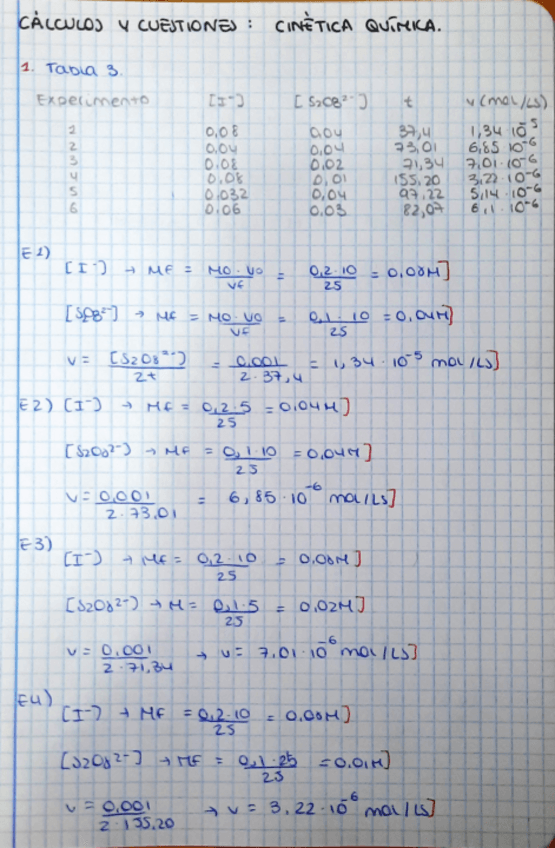 CÁLCULOS Y CUESTIONES: CINÈTICA QUÍMICA.
1. Tabla 3.
Experimento [I⁻] [S2O8²⁻] t v (mol/Ls)
1 0,08 0,04 37,4 1,34·10⁻⁵
2 0,04 0,04 73,01 6,85·10⁻⁶
3 0,08 0,02 71,34 7,01·10⁻⁶
4 0,08 0,01 155,20 3,22·10⁻⁶
5 0,032 0,04 97,22 5,14·10⁻⁶
6 0,06 0,03 82,07 6,1·10⁻⁶
E1)
[I⁻] → Mf = M0·V0 / Vf = 0,2·10 / 25 = 0,08M]
[S2O8²⁻] → Mf = M0·V0 / Vf = 0,1·10 / 25 = 0,04M]
v = [S2O8²⁻] / 2t = 0,001 / 2·37,4 = 1,34·10⁻⁵ mol/Ls]
E2) [I⁻] → Mf = 0,2·5 / 25 = 0,04M]
[S2O8²⁻) → Mf = 0,1·10 / 25 = 0,04M]
v = 0,001 / 2·73,01 = 6,85·10⁻⁶ mol/Ls]
E3)
[I⁻) → Mf = 0,2·10 / 25 = 0,08M]
[S2O8²⁻) → M = 0,1·5 / 25 = 0,02M]
v = 0,001 / 2·71,34 → v = 7,01·10⁻⁶ mol/Ls]
E4)
[I⁻) → Mf = 0,2·10 / 25 = 0,08M]
[S2O8²⁻] → Mf = 0,1·25 / 25 = 0,01M]
v = 0,001 / 2·155,20 → v = 3,22·10⁻⁶ mol/Ls]